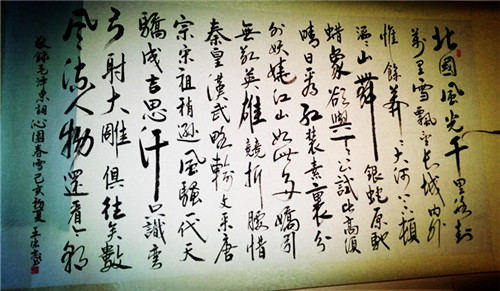 北國風光千里冰封
萬里雪飄望長城內外
惟餘莽〻大河上下頓
滔〻山舞銀蛇原馳
蠟象欲與天公試比高須
晴日看紅裝素裹分
外妖嬈江山如此多嬌引
無數英雄競折腰惜
秦皇漢武略輸文采唐
宗宋祖稍遜風騷一代天
驕成吉思汗只識彎
弓射大雕俱往矣數
風流人物還看今朝
敬錄毛澤東詞沁園春雪己亥初夏王